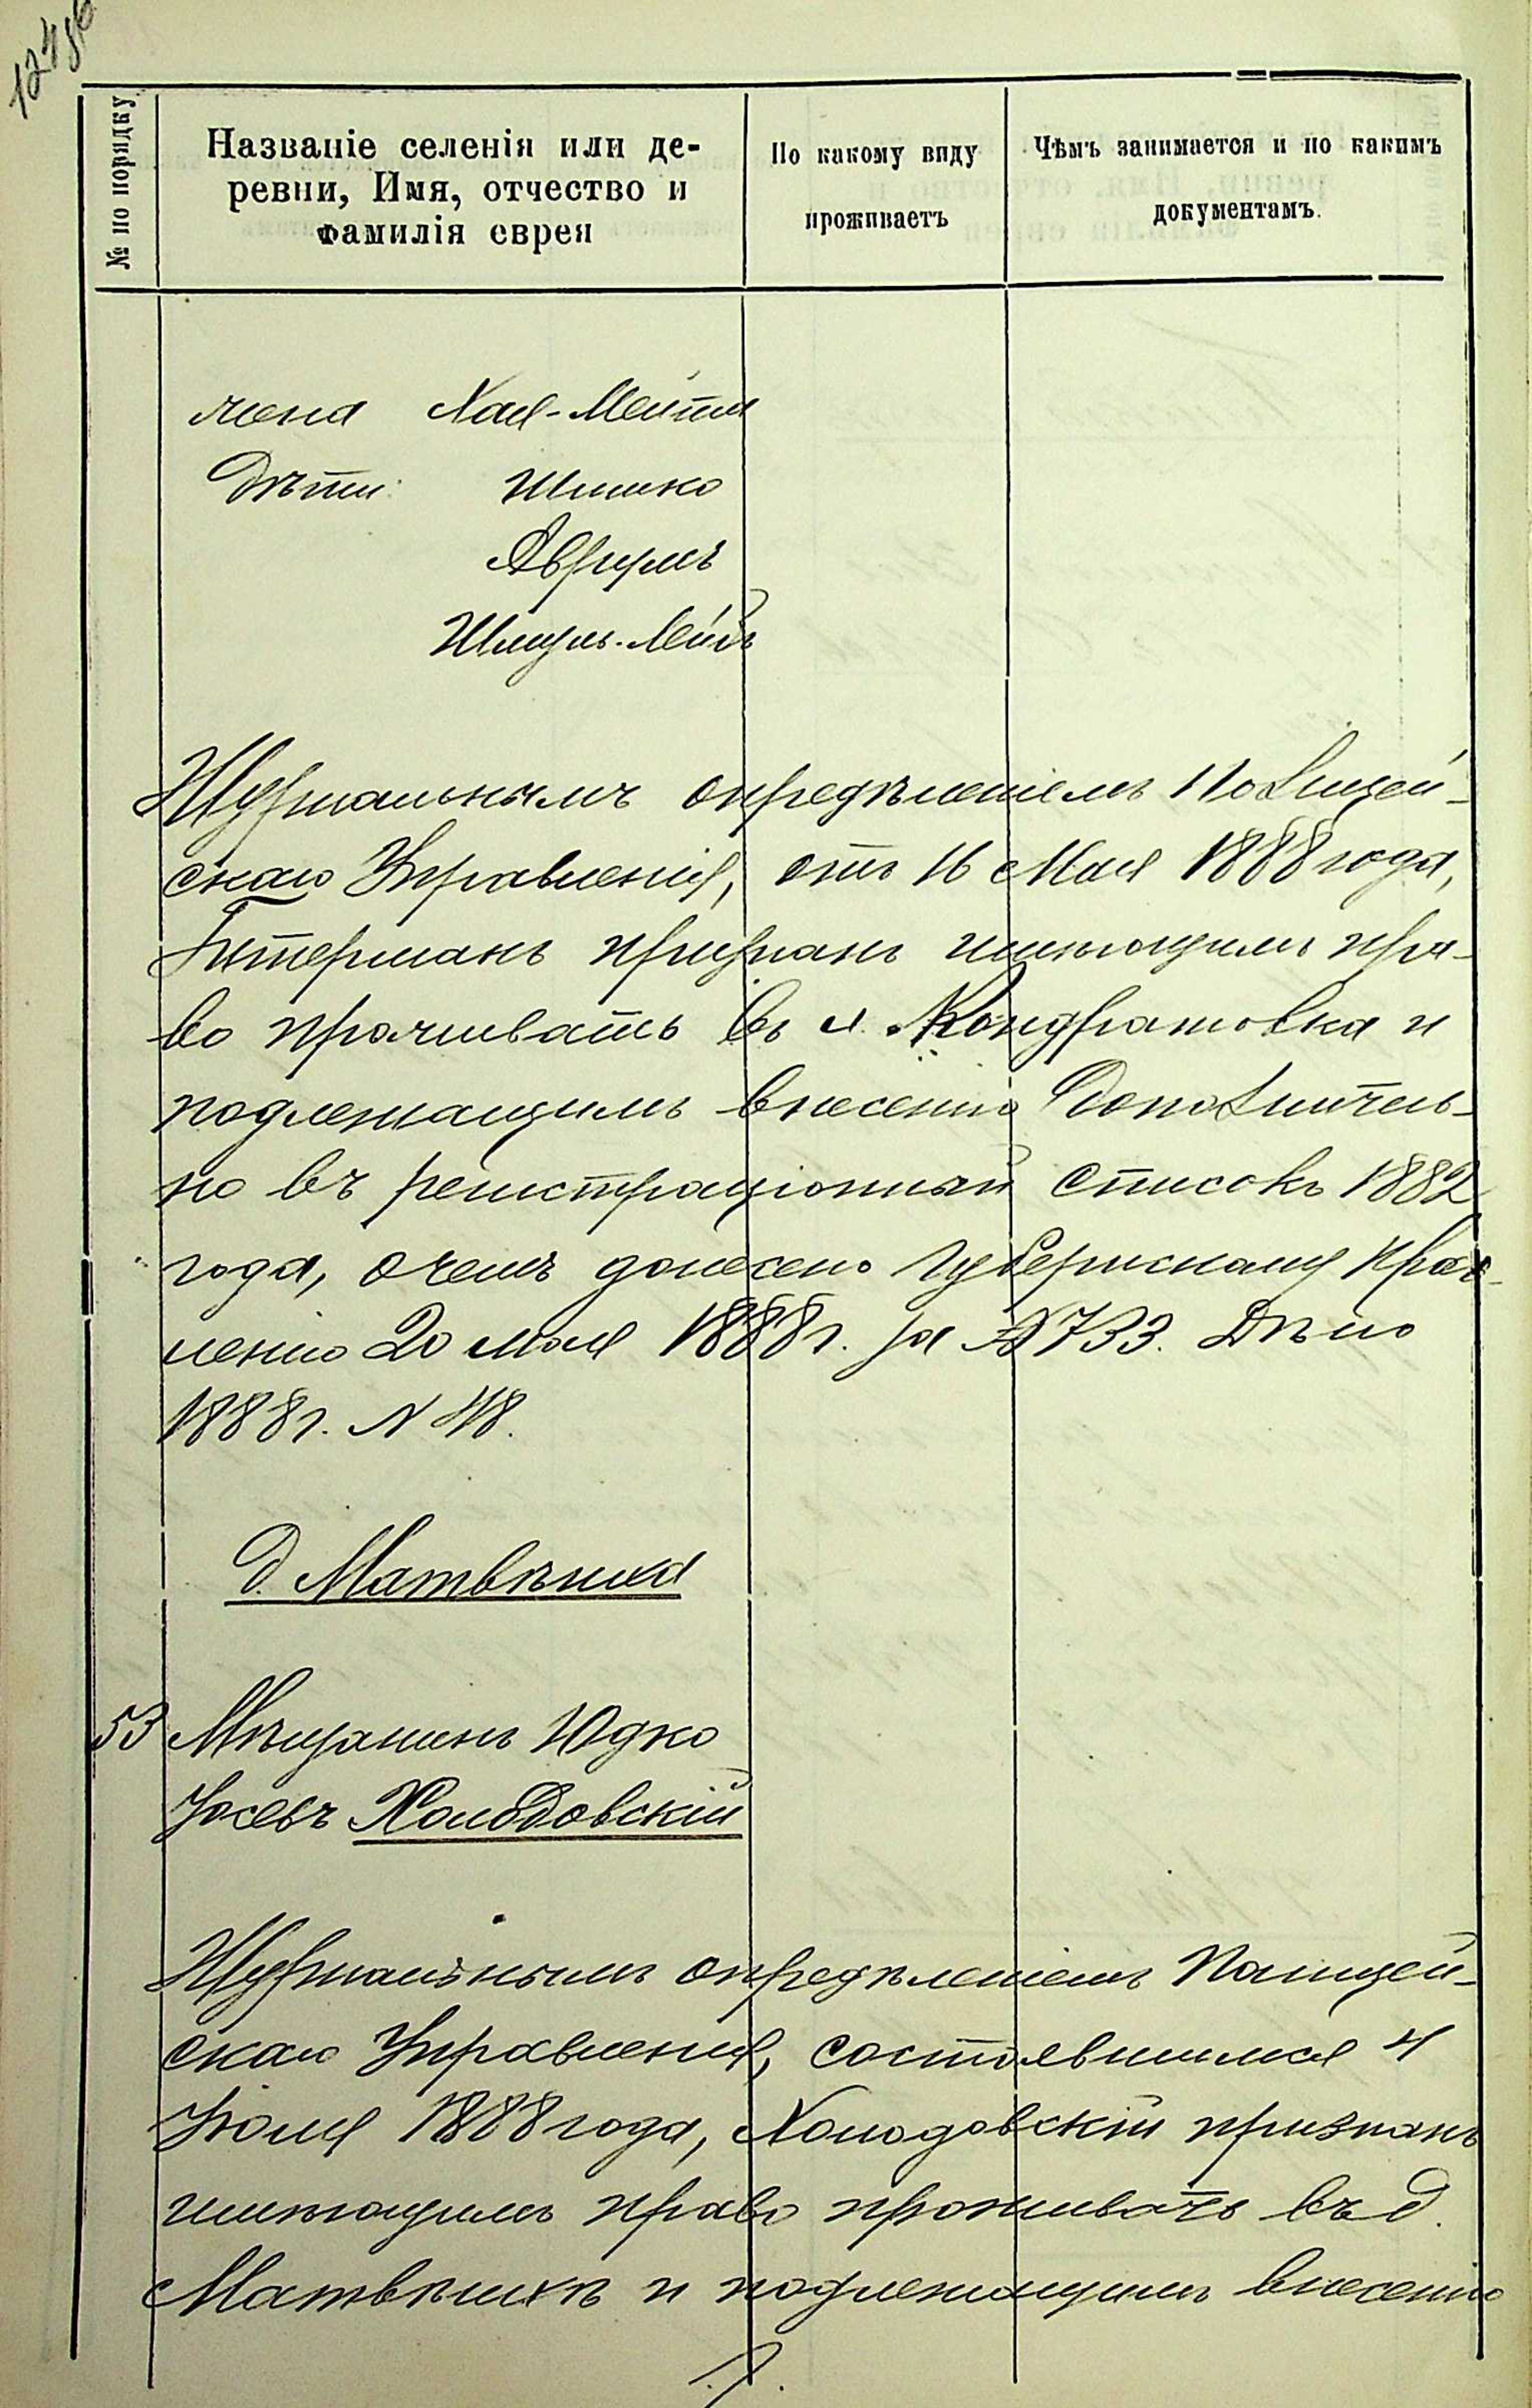 № по порядку
Названіе селенія или де-
ревни, Имя, отчество и
фамилія еврея
По какому виду
проживаетъ
Чѣмъ занимается и по какимъ
документамъ.
жена Хая-Мейта
Дѣти: Шимко
Аврумъ
Шмуль-Лейбъ
Журнальнымъ опредѣленіемъ Полицей-
скаго Управленія, отъ 16 Мая 1888 года,
Гитерманъ признанъ имѣющимъ пра-
во проживать въ с. Кондратовка и
подлежащимъ внесенію Дополнитель-
но въ регистраціонный списокъ 1882
года, о чемъ донесено Губернскому Прав-
ленію 20 мая 1888 г. за № 733. Дѣло
1888 г. № 48.
д. Матвѣиха
53 Мѣщанинъ Юдко
Іосевъ Холодовскій
Журнальнымъ опредѣленіемъ Полицей-
скаго Управленія, состоявшимся 4
Іюля 1888 года, Холодовскій признанъ
имѣющимъ право проживать въ д.
Матвѣихѣ и подлежащимъ внесенію